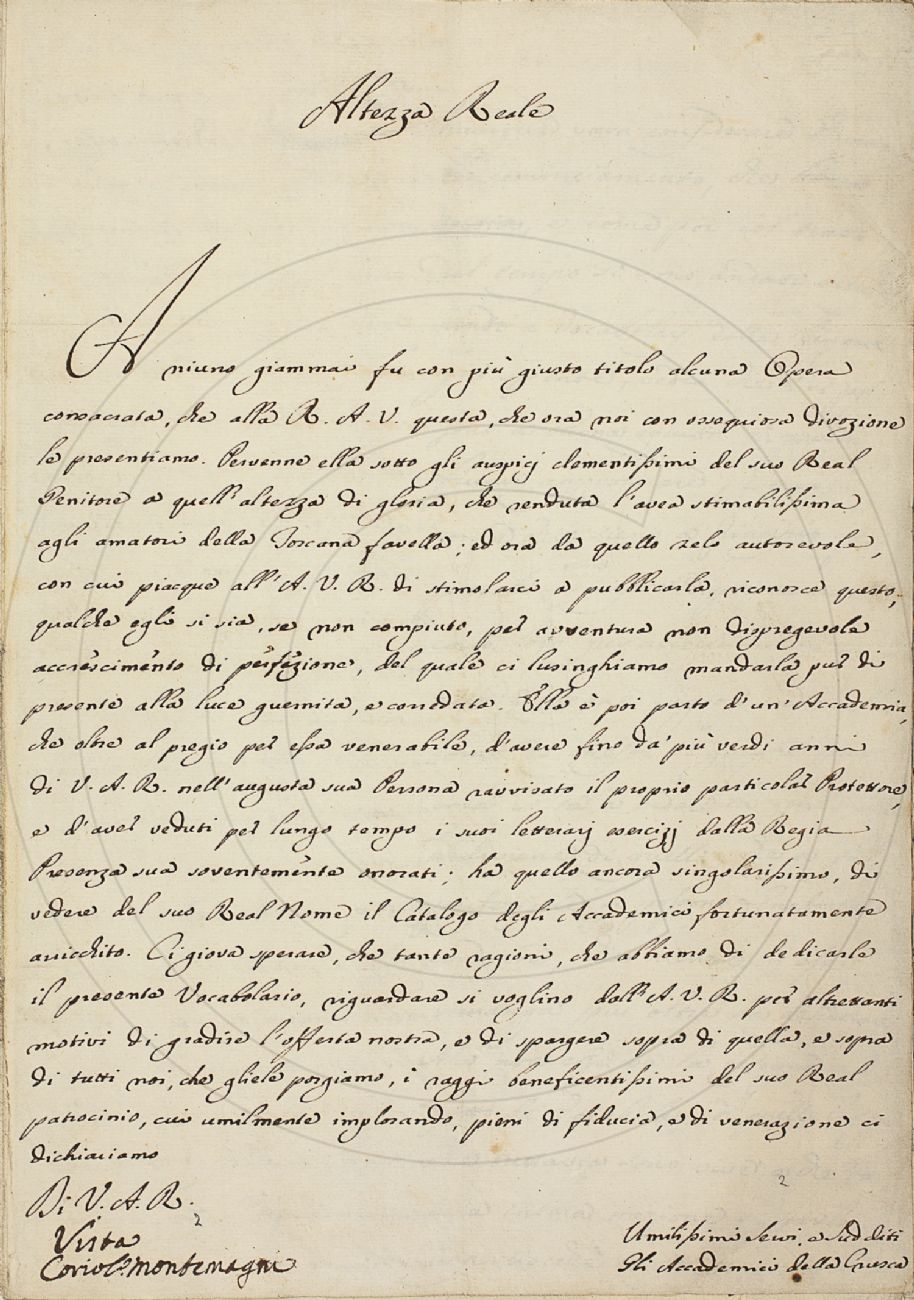 Altezza Reale
A niuno giammai fu con più giusto titolo alcuna Opera
consacrata, che alla R. A. V. questa, che ora noi con ossequiosa divozione
le presentiamo. Pervenne ella sotto gli auspicj clementissimi del suo Real
Genitore a quell'altezza di gloria, che renduta l'avea stimabilissima
agli amatori della Toscana favella; ed ora da quello zelo autorevole,
con cui piacque all'A. V. R. di stimolarci a pubblicarla, riconosce questo,
qualche egli si sia, se non compiuto, per avventura non dispregevole
accrescimento di perfezione, del quale ci lusinghiamo mandarla pur di
presente alla luce guernita, e corredata. Ella è poi parto d'un'Accademia,
che oltre al pregio per essa venerabile, d'avere fino da' più verdi anni
di V. A. R. nell'augusta sua Persona ravvisato il proprio particolar Protettore,
e d'aver veduti per lungo tempo i suoi letterarj esercizj dalla Regia
Presenza sua soventemente onorati; ha quello ancora singolarissimo, di
vedere del suo Real Nome il Catalogo degli Accademici fortunatamente
arricchito. Ci giova sperare, che tante ragioni, che abbiamo di dedicarle
il presente Vocabolario, riguardare si voglino dall'A. V. R. per altrettanti
motivi di gradire l'offerta nostra, e di spargere sopra di quella, e sopra
di tutti noi, che gliele porgiamo, i raggi beneficentissimi del suo Real
patrocinio, cui umilmente implorando, pieni di fiducia, e di venerazione ci
dichiariamo
Di V. A. R.
2
2
Vista
Coriol.º Montemagni
Umilissimi Servi, e Sudditi
Gli Accademici della Crusca